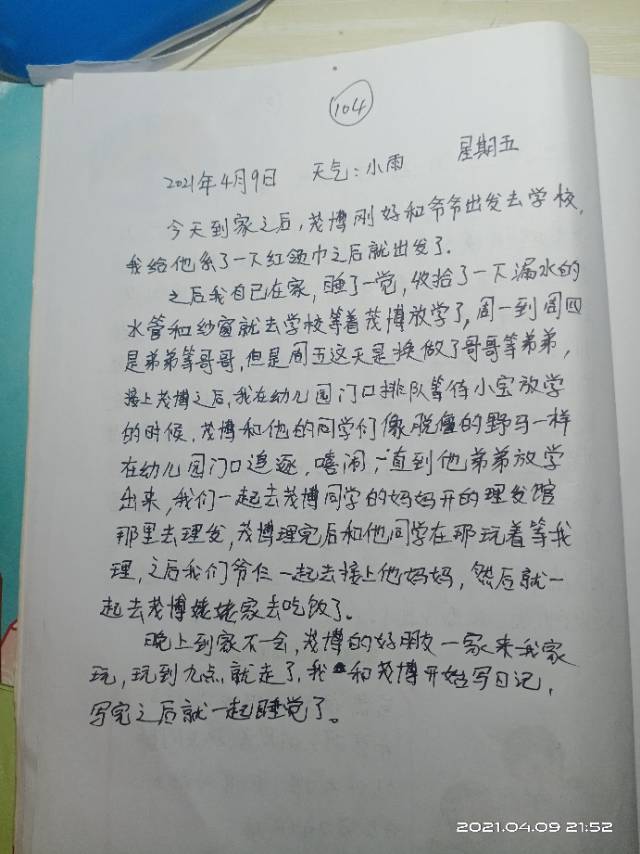 104
2021年4月9日 天气:小雨 星期五
今天到家之后,茂博刚好和爷爷出发去学校,
我给他系了一下红领巾之后就出发了.
之后我自已在家,睡了一觉,收拾了一下漏水的
水管和纱窗就去学校等着茂博放学了,周一到周四
是弟弟等哥哥,但是周五这天是换做了哥哥等弟弟,
接上茂博之后,我在幼儿园门口排队等待小宝放学
的时候,茂博和他的同学们像脱僵的野马一样
在幼儿园门口追逐,嘻闹,一直到他弟弟放学
出来,我们一起去茂博同学的妈妈开的理发馆
那里去理发,茂博理完后和他同学在那玩着等我
理,之后我们爷仨一起去接上他妈妈,然后就一
起去茂博姥姥家去吃饭了.
晚上到家不一会,茂博的好朋友一家来我家
玩,玩到九点就走了,我和茂博开始写日记,
写完之后就一起睡觉了。
2021.04.09 21:52